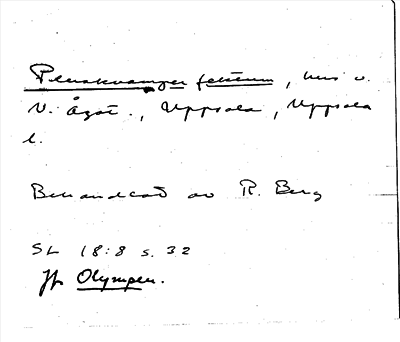 Pluskvamperfektum, hus v.
V. Ågat., Uppsala, Uppsala
l.
Behandlat av R. Berg
SL 18:8 s. 32
Jfr Olympen.